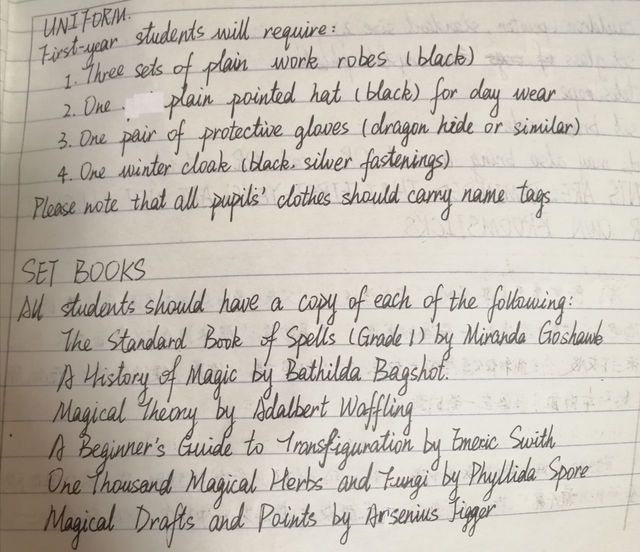 UNIFORM.
First-year students will require:
1. Three sets of plain work robes (black)
2. One plain pointed hat (black) for day wear
3. One pair of protective gloves (dragon hide or similar)
4. One winter cloak (black. silver fastenings)
Please note that all pupils' clothes should carry name tags
SET BOOKS
All students should have a copy of each of the following:
The Standard Book of Spells (Grade 1) by Miranda Goshawk
A History of Magic by Bathilda Bagshot.
Magical Theory by Adalbert Waffling
A Beginner's Guide to Transfiguration by Emeric Swith
One Thousand Magical Herbs and Fungi by Phyllida Spore
Magical Drafts and Points by Arsenius Jigger